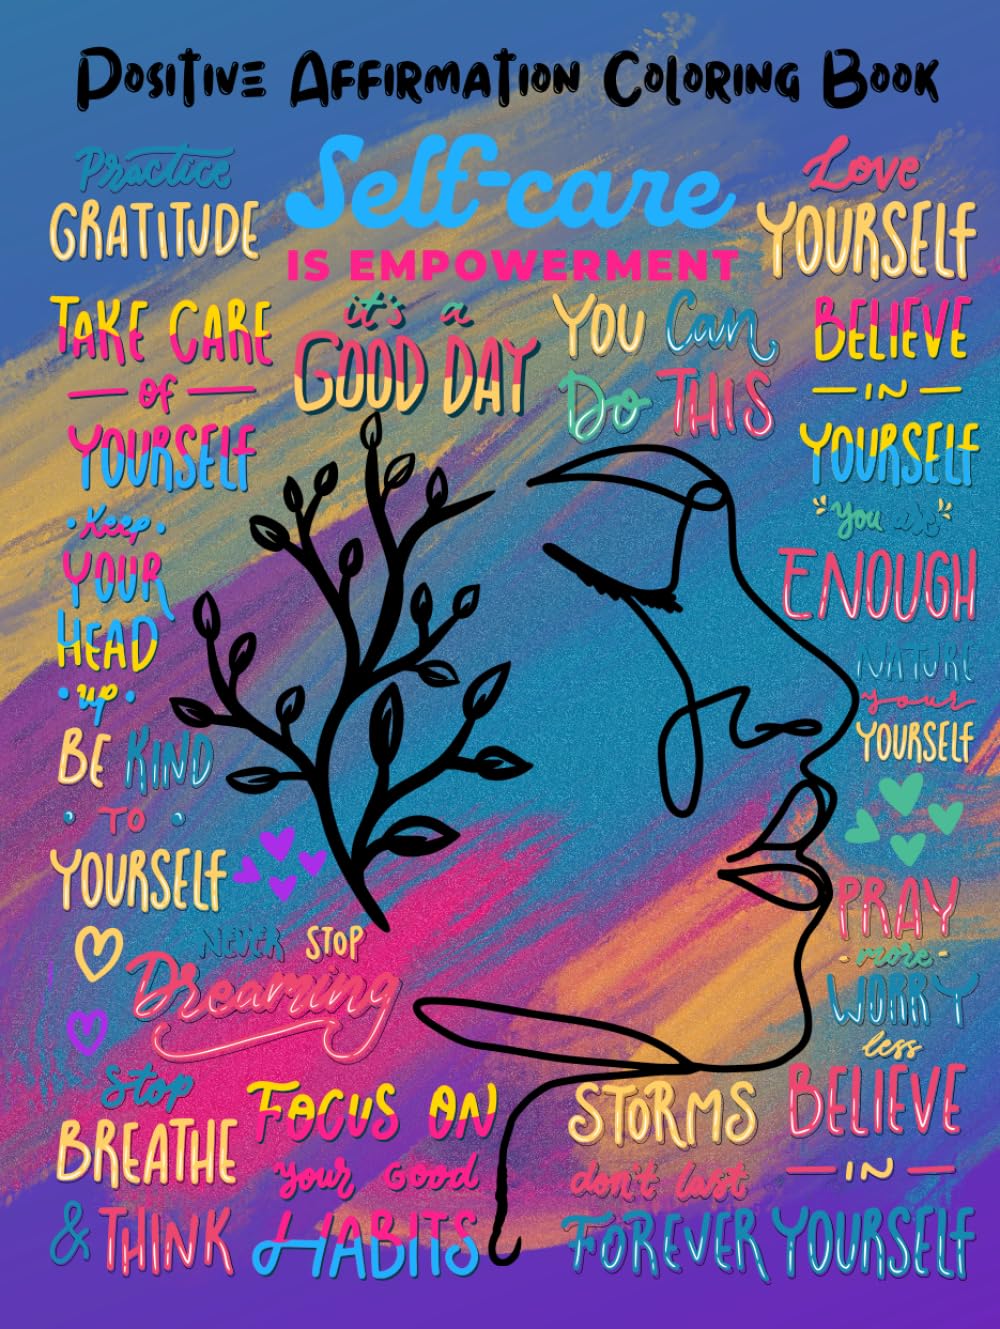 Positive Affirmation Coloring Book
Practice
GRATITUDE
Self-care
IS EMPOWERMENT
Love
YOURSELF
TAKE CARE
OF
YOURSELF
it's a
GOOD DAY
YOU Can
Do THIS
BELIEVE
IN
YOURSELF
Keep
YOUR
HEAD
up
you are
ENOUGH
NATURE
your
YOURSELF
BE KIND
TO
YOURSELF
NEVER STOP
Dreaming
PRAY
more
WORRY
less
Stop
BREATHE
& THINK
FOCUS ON
your GOOD
HABITS
STORMS
don't last
FOREVER
BELIEVE
IN
YOURSELF